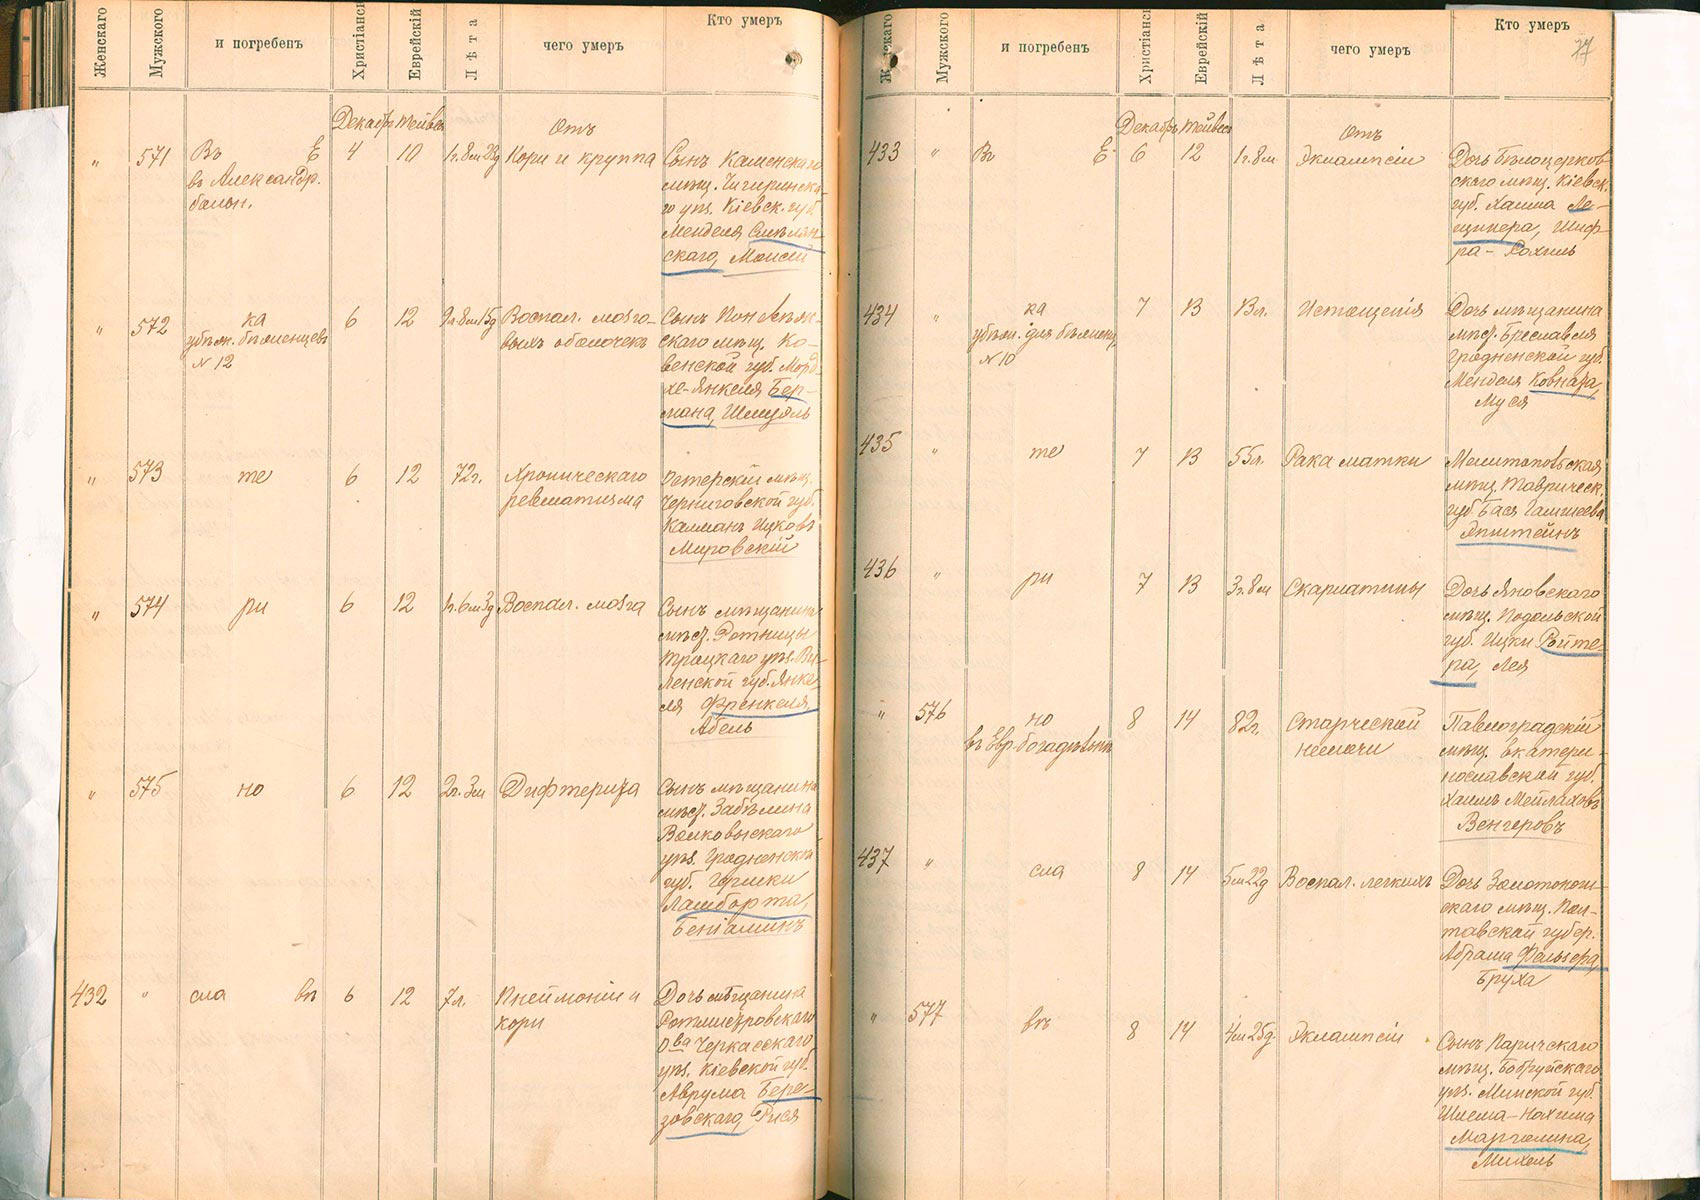 Женскаго
Мужского
и погребенъ
Христіанск
Еврейскій
Лѣта
чего умеръ
Кто умеръ
Декабрь Тейвесъ
Отъ
" 571 Въ Е 4 10 1г.8м.23д Кори и круппа Сынъ Каменскаго
въ Александр. мѣщ. Чигиринска-
больн. го уѣз. Кіевск. губ.
Менделя Смѣлян-
скаго, Моисей
" 572 ка 6 12 9л.8м.15д Воспал. мозго- Сынъ Поневѣж-
убѣж. бѣженцевъ выхъ оболочекъ скаго мѣщ. Ко-
N 12 венской губ. Морд-
хе-Янкеля Бер-
мана, Шмуэль
" 573 те 6 12 72г. Хроническаго Остерскій мѣщ.
ревматизма Черниговской губ.
Калманъ Ицковъ
Мировскій
" 574 ри 6 12 1г.6м.3д Воспал. мозга Сынъ мѣщанина
мѣст. Ротницы
Троцкаго уѣз. Ви-
ленской губ. Янке-
ля Френкеля,
Абель
" 575 но 6 12 2г.3м Дифтерита Сынъ мѣщанина
мѣст. Забѣлина
Волковыскаго
уѣз. Гродненской
губ. Гершки
Лашборта,
Беніаминъ
432 " сла въ 6 12 7л. Пнеймоніи и Дочь мѣщанина
кори Ротмистровскаго
О-ва Черкасскаго
уѣз. Кіевской губ.
Аврума Бере-
зовскаго, Рися
Женскаго
Мужского
и погребенъ
Христіанск
Еврейскій
Лѣта
чего умеръ
Кто умеръ
77
Декабрь Тейвесъ
Отъ
433 " Въ Е 6 12 1г.8м Эклампсіи Дочь Бѣлоцерков-
скаго мѣщ. Кіевск.
губ. Хаима Ле-
щинера, Шиф-
ра-Рохиль
434 " ка 7 13 13л. Истощенія Дочь мѣщанина
убѣж. для бѣженц. мѣст. Бреславля
N 10 Гродненской губ.
Менделя Ковнара,
Муся
435 " те 7 13 55л. Рака матки Мелитопольская
мѣщ. Таврическ.
губ. Бася Гамшеева
Эпштейнъ
436 " ри 7 13 3г.8м Скарлатины Дочь Яновскаго
мѣщ. Подольской
губ. Ицки Ройте-
ра, Лея
" 576 но 8 14 82г. Старческой Павлоградскій
въ Евр. богадѣльнѣ немочи мѣщ. Екатери-
нославской губ.
Хаимъ Мейлаховъ
Венгеровъ
437 " сла 8 14 5м22д Воспал. легкихъ Дочь Золотонош-
скаго мѣщ. Пол-
тавской губер.
Абрама Фельзера,
Бруха
" 577 въ 8 14 4м25д. Эклампсіи Сынъ Паричскаго
мѣщ. Бобруйскаго
уѣз. Минской губ.
Шлема-Нохима
Марголина,
Михель